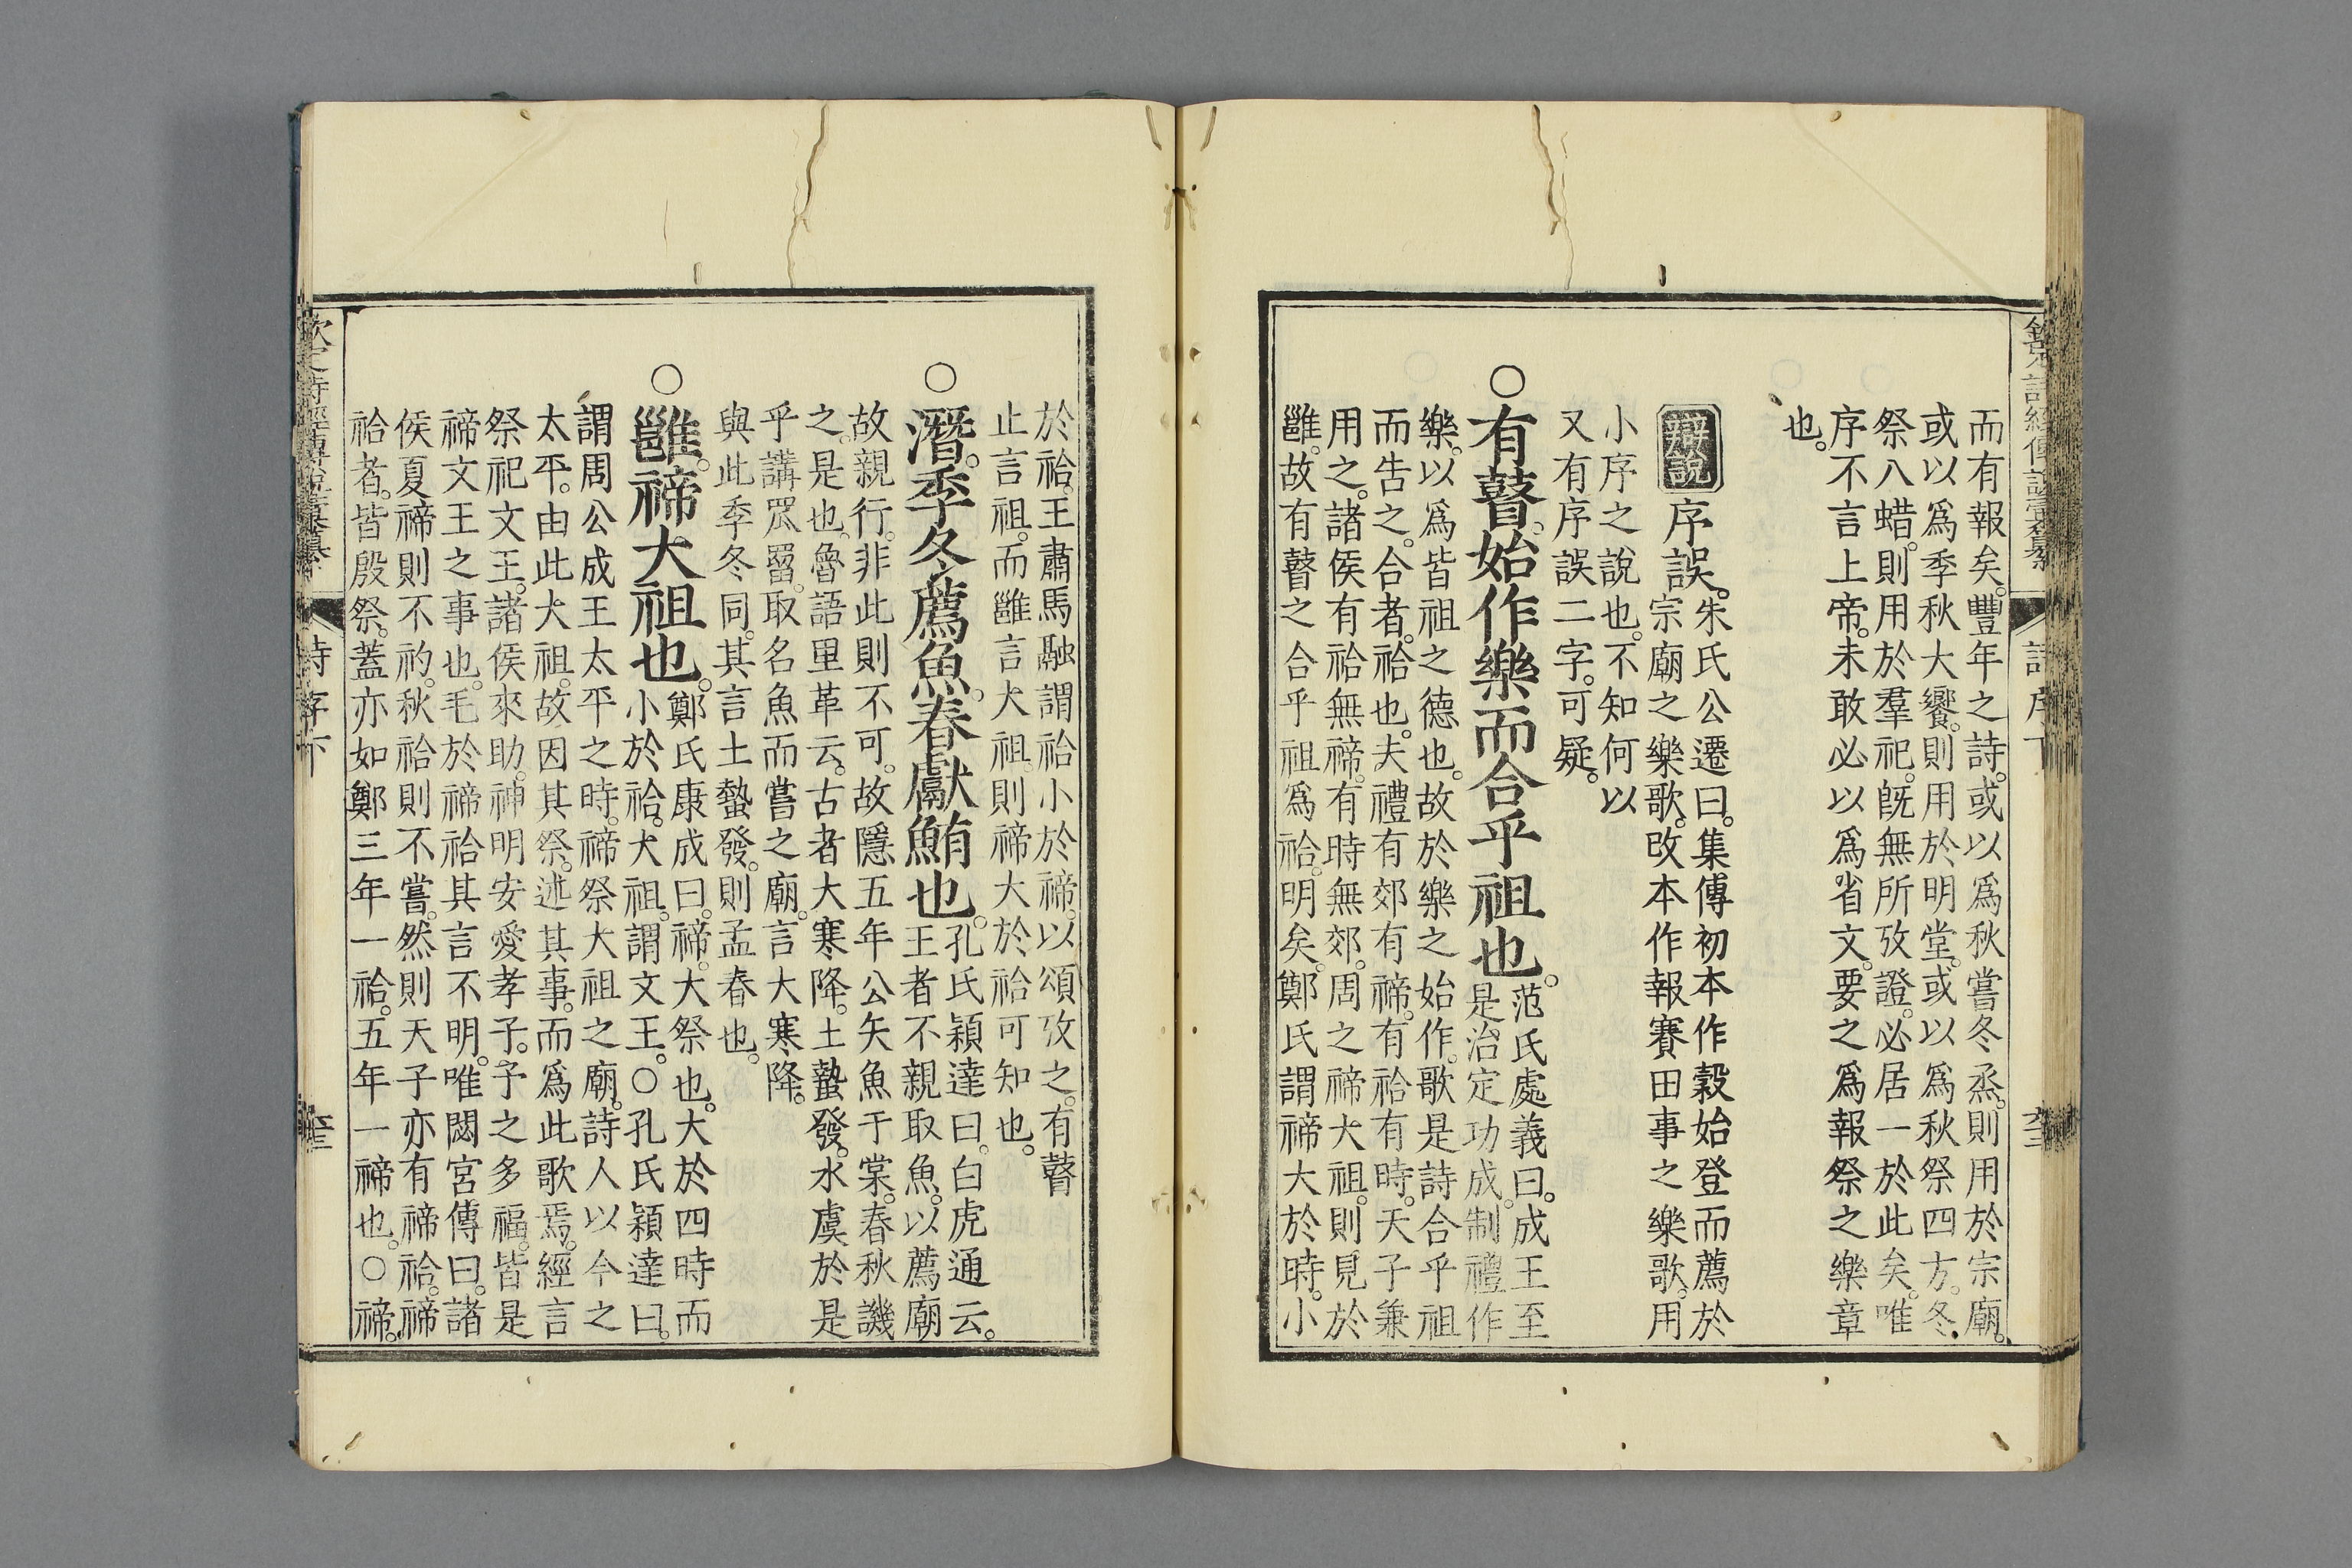 而有報矣。豐年之詩。或以爲秋嘗冬烝。則用於宗廟。
或以爲季秋大饗。則用於明堂。或以爲秋祭四方。冬
祭八蜡。則用於羣祀。旣無所攷證。必居一於此矣。唯
序不言上帝。未敢必以爲省文。要之爲報祭之樂章
也。
辯說 序誤。朱氏公遷曰。集傳初本作穀始登而薦於
宗廟之樂歌。改本作報賽田事之樂歌。用
小序之說也。不知何以
又有序誤二字。可疑。
○有瞽。始作樂而合乎祖也。范氏處義曰。成王至
是治定功成。制禮作
樂。以爲皆祖之德也。故於樂之始作。歌是詩合乎祖
而告之。合者。祫也。夫禮有郊有禘。有祫有時。天子兼
用之。諸侯有祫無禘。有時無郊。周之禘大祖。則見於
雝。故有瞽之合乎祖爲祫。明矣。鄭氏謂禘大於時。小
於祫。王肅馬融謂祫小於禘。以頌攷之。有瞽
止言祖。而雝言大祖。則禘大於祫可知也。
○潛。季冬薦魚。春獻鮪也。孔氏穎達曰。白虎通云。
王者不親取魚。以薦廟
故親行。非此則不可。故隱五年公矢魚于棠。春秋譏
之。是也。魯語里革云。古者大寒降。土蟄發。水虞於是
乎講罛罶。取名魚而嘗之廟。言大寒降。
與此季冬同。其言土蟄發。則孟春也。
○雝。禘大祖也。鄭氏康成曰。禘。大祭也。大於四時而
小於祫。大祖。謂文王。○孔氏穎達曰。
謂周公成王太平之時。禘祭大祖之廟。詩人以今之
太平。由此大祖。故因其祭。述其事。而爲此歌焉。經言
祭祀文王。諸侯來助。神明安愛孝子。予之多福。皆是
禘文王之事也。毛於禘祫其言不明。唯閟宮傳曰。諸
侯夏禘則不礿。秋祫則不嘗。然則天子亦有禘祫。禘
祫者。皆殷祭。蓋亦如鄭三年一祫。五年一禘也。○禘。
詩序下